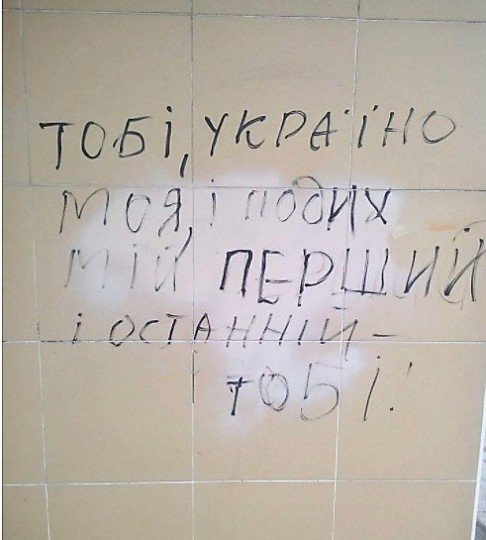 ТОБІ, УКРАЇНО
МОЯ, І ПОДИХ
МІЙ ПЕРШИЙ
І ОСТАННІЙ –
ТОБІ!